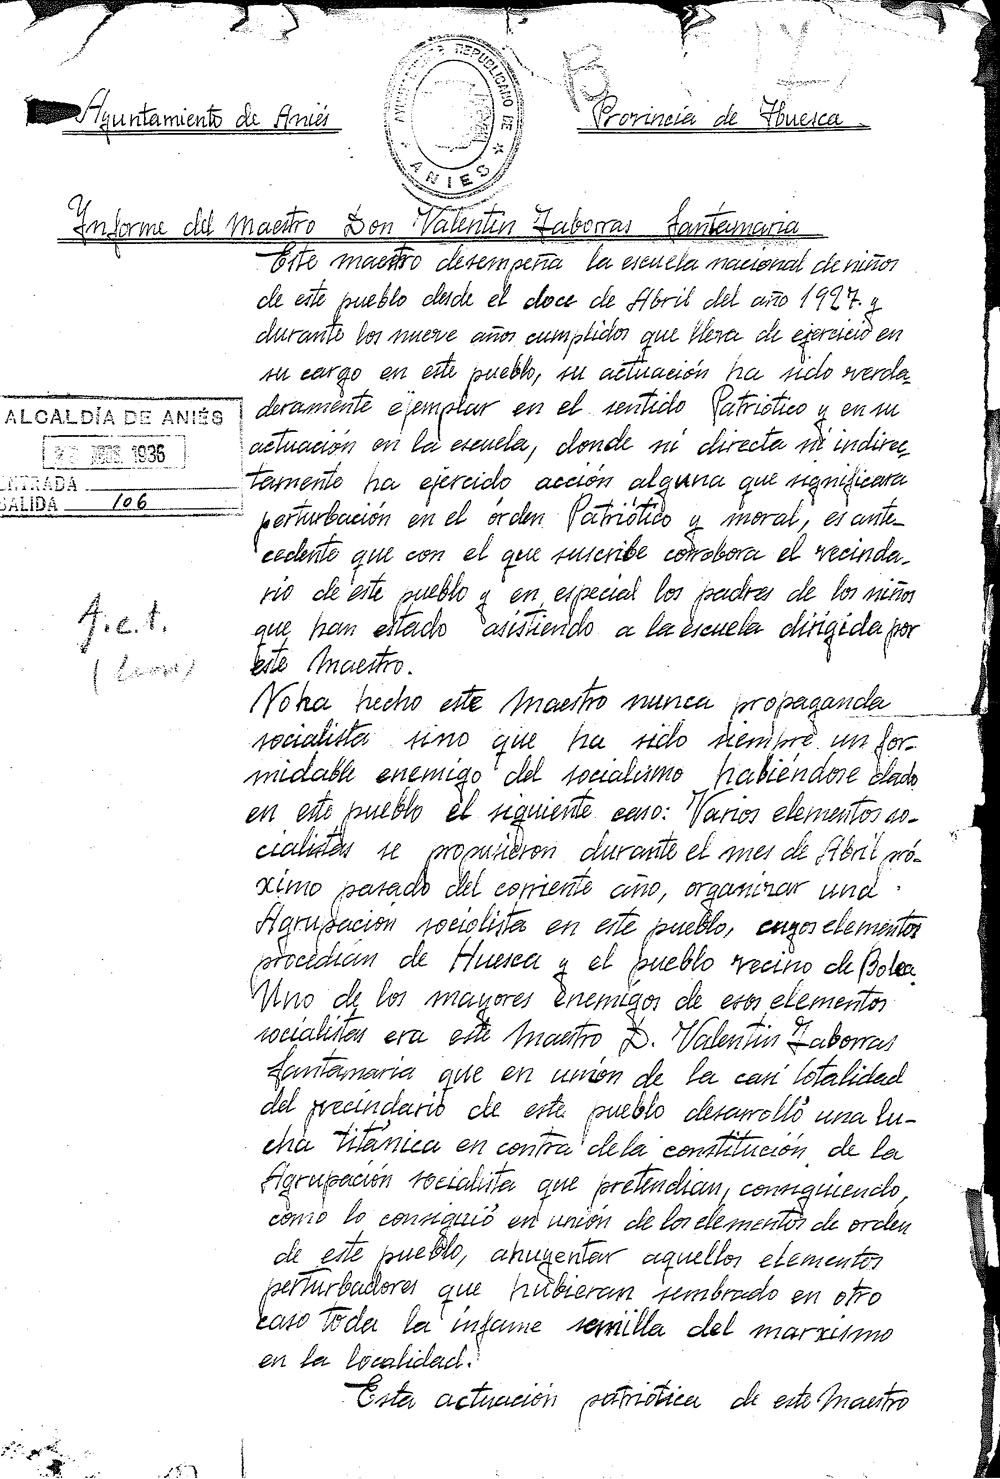 AYUNTAMIENTO REPUBLICANO DE
ANIES
B
Ayuntamiento de Aniés
Provincia de Huesca.
Informe del Maestro Don Valentin Zaborras Santamaria
Este maestro desempeña la escuela nacional de niños
de este pueblo desde el doce de Abril del año 1927. y
durante los nueve años cumplidos que lleva de ejercicio en
su cargo en este pueblo, su actuación ha sido verda-
deramente ejemplar en el sentido Patriótico y en su
actuación en la escuela, donde ni directa ni indirec-
tamente ha ejercido acción alguna que significara
perturbación en el órden Patriótico y moral, es ante-
cedente que con el que suscribe corrobora el vecinda-
rio de este pueblo y en especial los padres de los niños
que han estado asistiendo a la escuela dirigida por
este Maestro.
ALCALDÍA DE ANIÉS
1936
ENTRADA
SALIDA 106
No ha hecho este Maestro nunca propaganda
socialista sino que ha sido siempre un for-
midable enemigo del socialismo habiéndose dado
en este pueblo el siguiente caso: Varios elementos so-
cialistas se propusieron durante el mes de Abril pró-
ximo pasado del corriente año, organizar una
Agrupación sociolista en este pueblo, cuyos elementos
procedian de Huesca y el pueblo vecino de Bolea.
Uno de los mayores enemigos de esos elementos
socialistas era este Maestro D. Valentin Zaborras
Santamaria que en unión de la casi totalidad
del vecindario de este pueblo desarrolló una lu-
cha titánica en contra de la constitución de la
Agrupación socialista que pretendian, consiguiendo,
como lo consiguió en unión de los elementos de orden
de este pueblo, ahuyentar aquellos elementos
perturbadores que hubieran sembrado en otro
caso toda la infame semilla del marxismo
en la localidad.
Esta actuación patriótica de este Maestro